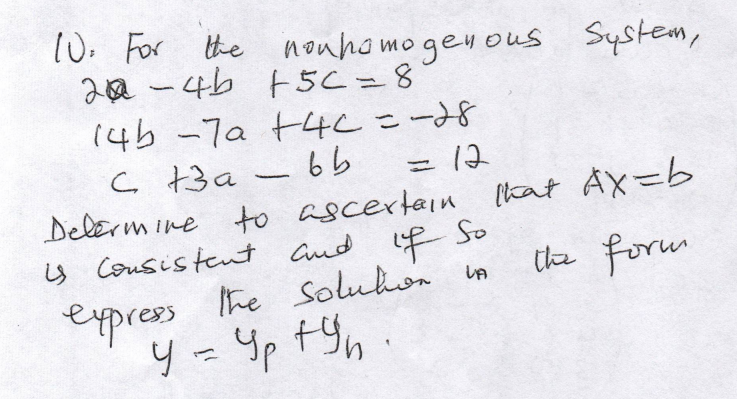 10. For the nonhomogenous System,
2a - 4b + 5c = 8
14b - 7a + 4c = -28
c + 3a - 6b = 12
Determine to ascertain that AX = b
is consistent and if so
express the solution in the form
y = yp + yh.